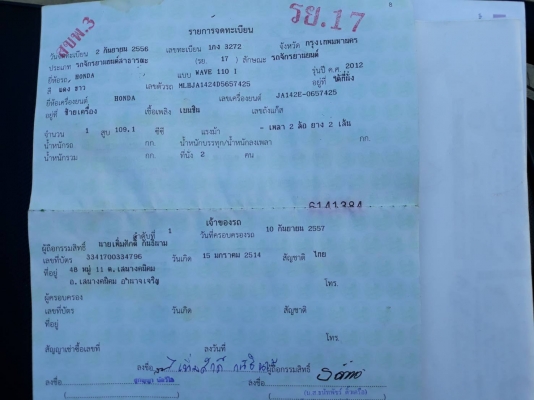 8
สขพ.3
รย.17
รายการจดทะเบียน
วันจดทะเบียน 2 กันยายน 2556 เลขทะเบียน 1กง 3272 จังหวัด กรุงเทพมหานคร
ประเภท รถจักรยานยนต์สาธารณะ (รย. 17) ลักษณะ รถจักรยานยนต์
ยี่ห้อรถ HONDA แบบ WAVE 110 I รุ่นปี ค.ศ. 2012
สี แดง ขาว เลขตัวรถ MLHJA1424D5657425 อยู่ที่ ใต้ที่นั่ง
ยี่ห้อเครื่องยนต์ HONDA เลขเครื่องยนต์ JA142E-0657425
อยู่ที่ ซ้ายเครื่อง เชื้อเพลิง เบนซิน เลขถังแก๊ส
จำนวน 1 สูบ 109.1 ซีซี แรงม้า - เพลา 2 ล้อ ยาง 2 เส้น
น้ำหนักรถ กก. น้ำหนักบรรทุก/น้ำหนักลงเพลา กก.
น้ำหนักรวม กก. ที่นั่ง 2 คน
6141384
เจ้าของรถ
ลำดับที่ 1 วันที่ครอบครองรถ 10 กันยายน 2557
ผู้ถือกรรมสิทธิ์ นายเติมศักดิ์
เลขที่บัตร 3341700334796 วันเกิด 15 มกราคม 2514 สัญชาติ ไทย
ที่อยู่ 48 หมู่ 11 ต.เสนางคนิคม
อ.เสนางคนิคม อำนาจเจริญ โทร.
ผู้ครอบครอง
เลขที่บัตร วันเกิด สัญชาติ
ที่อยู่
โทร.
สัญญาเช่าซื้อเลขที่ ลงวันที่
ลงชื่อ ผู้ถือกรรมสิทธิ์
ลงชื่อ ลงชื่อ